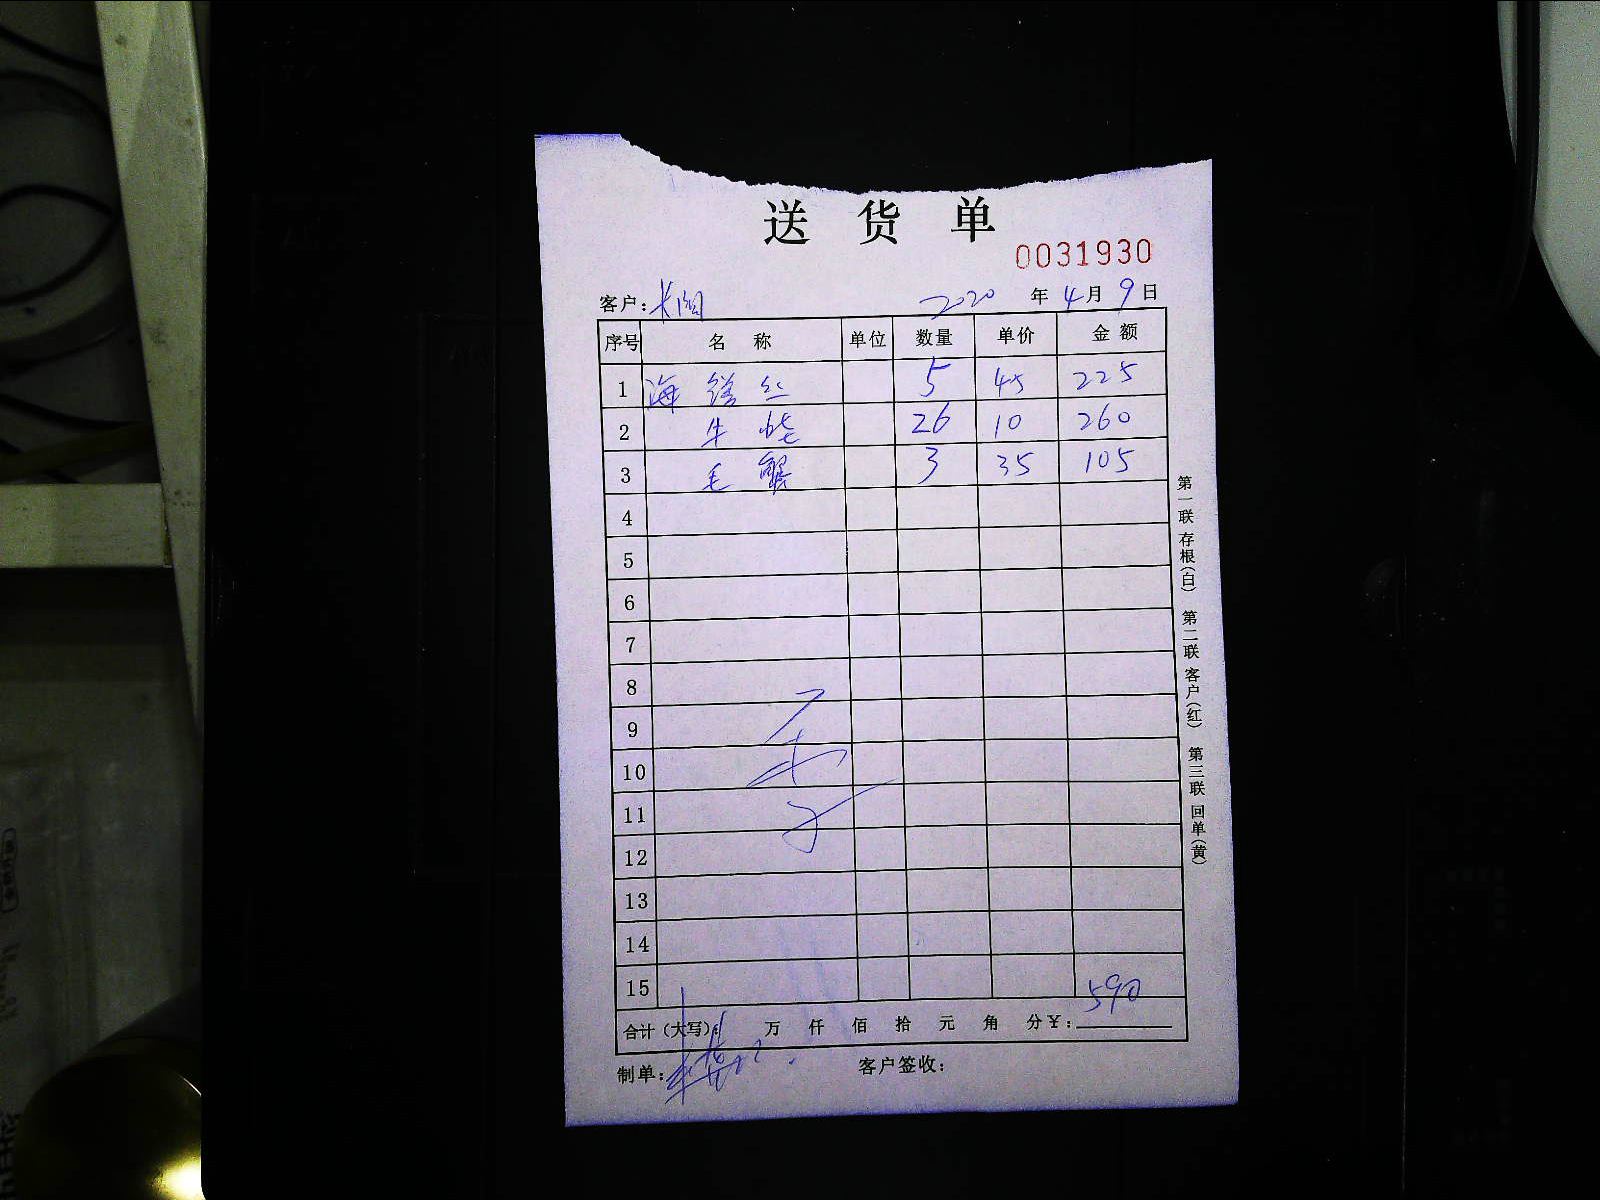 送 货 单
0031930
客户： 2020 年 4 月 9 日
序号 名 称 单位 数量 单价 金 额
1 海 丝 5 45 225
2 牛 蛙 26 10 260
3 毛 蟹 3 35 105
4
5
6
7
8
9
10
11
12
13
14
15 590
合计（大写）： 万 仟 佰 拾 元 角 分￥：
制单： 客户签收：
第一联 存根（白） 第二联 客户（红） 第三联 回单（黄）